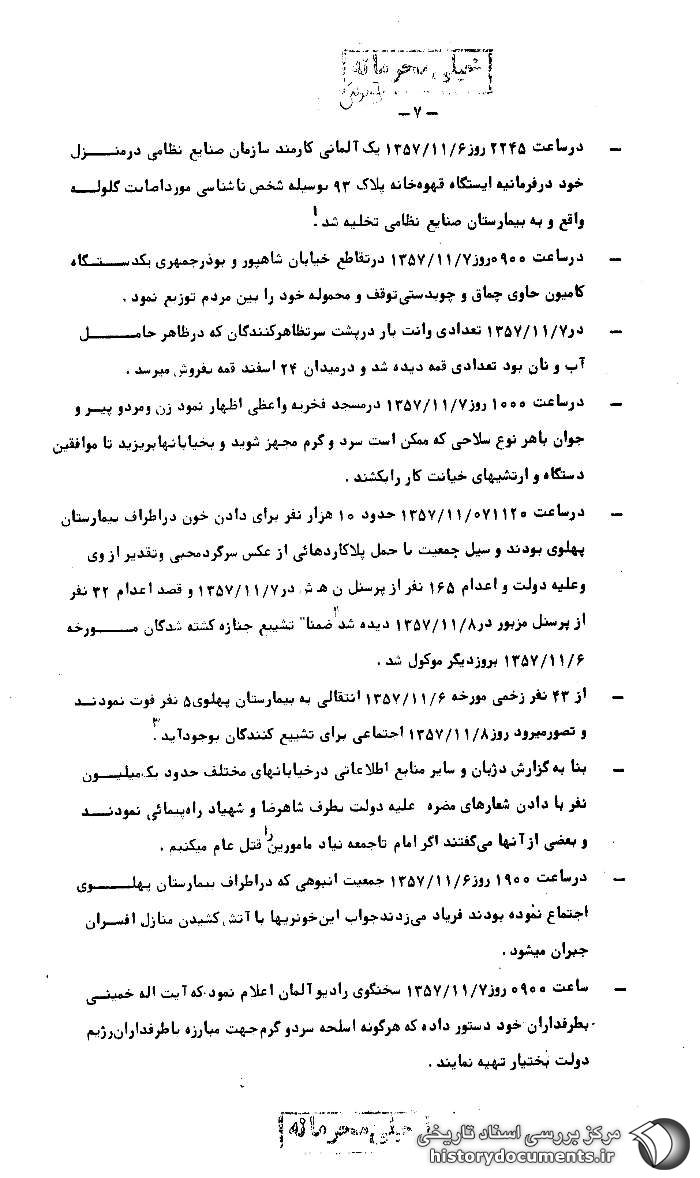 خیلی محرمانه
- ۷ -
- درساعت ۲۲۴۵ روز ۱۳۵۷/۱۱/۶ یک آلمانی کارمند سازمان صنایع نظامی درمنـــزل
خود درفرمانیه ایستگاه قهوه‌خانه پلاک ۹۳ بوسیله شخص ناشناسی مورداصابت گلولـــه
واقع و به بیمارستان صنایع نظامی تخلیه شد .
- درساعت ۰۹۰۰روز۱۳۵۷/۱۱/۷ درتقاطع خیابان شاهپور و بوذرجمهری یکدستــگاه
کامیون حاوی چماق و چوبدستی‌توقف و محموله خود را بین مردم توزیع نمود .
- در۱۳۵۷/۱۱/۷ تعدادی وانت بار درپشت سرتظاهرکنندگان که درظاهر حامــــل
آب و نان بود تعدادی قمه دیده شد و درمیدان ۲۴ اسفند قمه بفروش میرسد .
- درساعت ۱۰۰۰ روز۱۳۵۷/۱۱/۷ درمسجد فخریه واعظی اظهار نمود زن ومردو پیــر و
جوان باهر نوع سلاحی که ممکن است سرد و گرم مجهز شوید و بخیابانهابریزید تا موافقین
دستگاه و ارتشیهای خیانت کار رابکشند .
- درساعت ۱۳۵۷/۱۱/۰۷۱۱۲۰ حدود ۱۰ هزار نفر برای دادن خون دراطراف بیمارستان
پهلوی بودند و سیل جمعیت با حمل پلاکاردهائی از عکس سرگردمحبی وتقدیر از وی
وعلیه دولت و اعدام ۱۶۵ نفر از پرسنل ن ه‍ ش در۱۳۵۷/۱۱/۷ و قصد اعدام ۳۲ نفر
از پرسنل مزبور در۱۳۵۷/۱۱/۸ دیده شد ۲ ضمنا" تشییع جنازه کشته شدگان مــــورخه
۱۳۵۷/۱۱/۶ بروزدیگر موکول شد .
- از ۴۳ نفر زخمی مورخه ۱۳۵۷/۱۱/۶ انتقالی به بیمارستان پهلوی۵ نفر فوت نمودنــد
و تصورمیرود روز۱۳۵۷/۱۱/۸ اجتماعی برای تشییع کنندگان بوجودآید ۳.
- بنا به گزارش دژبان و سایر منابع اطلاعاتی درخیابانهای مختلف حدود یک‌میلیــون
نفر با دادن شعارهای مضره علیه دولت بطرف شاهرضا و شهیاد راه‌پیمائی نمودنــد
و بعضی از آنها می‌گفتند اگر امام تاجمعه نیاد مامورین را قتل عام میکنیم .
- درساعت ۱۹۰۰ روز۱۳۵۷/۱۱/۶ جمعیت انبوهی که دراطراف بیمارستان پهلــــوی
اجتماع نموده بودند فریاد می‌زدندجواب این‌خونریها با آتش کشیدن منازل افســران
جبران میشود .
- ساعت ۰۹۰۰ روز۱۳۵۷/۱۱/۷ سخنگوی رادیو آلمان اعلام نمود که آیت اله خمینــی
بطرفداران خود دستور داده که هرگونه اسلحه سردو گرم جهت مبارزه باطرفداران‌رژیم
دولت بختیار تهیه نمایند .
خیلی محرمانه
مرکز بررسی اسناد تاریخی
historydocuments.ir